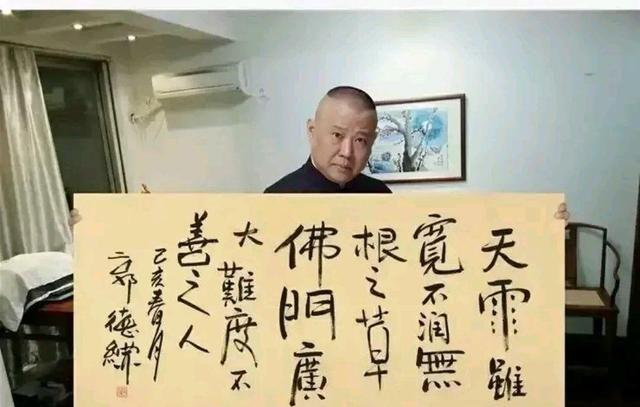 天雨雖
寬不润無
根之草
佛門廣
大難度不
善之人
己亥春月
郭德綱